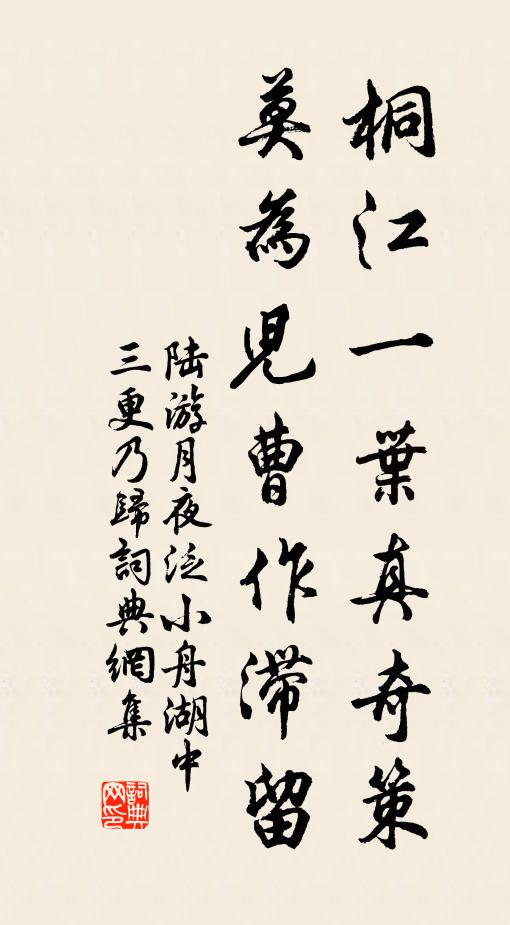 桐江一葉真奇策
莫為兒曹作滯留
陆游月夜泛小舟湖中
三更乃歸詞典網集
詞典网印